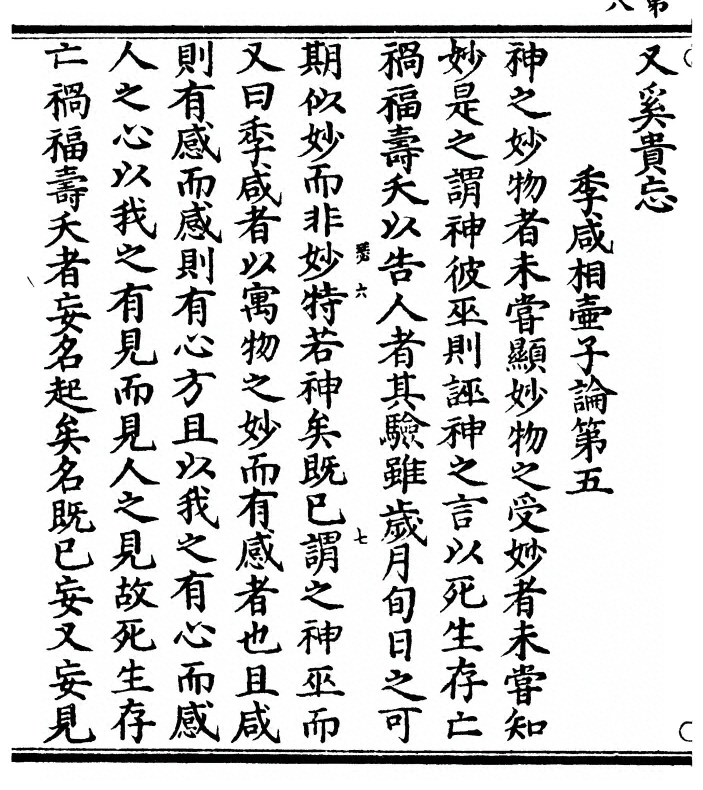 又奚貴忘
季咸相壷子論第五
神之妙物者未嘗顯妙物之受妙者未嘗知
妙是之謂神彼巫則誣神之言以死生存亡
禍福壽夭以告人者其驗雖歲月旬日之可
期似妙而非妙特若神矣既已謂之神巫而
又曰季咸者以寓物之妙而有感者也且咸
則有感而感則有心方且以我之有心而感
人之心以我之有見而見人之見故死生存
亡禍福壽夭者妄名起矣名既已妄又妄見
六
七